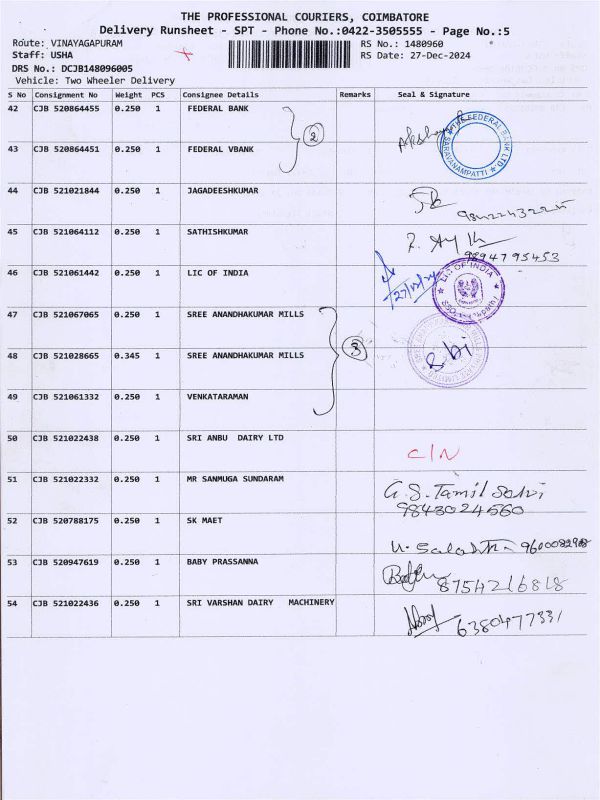 THE PROFESSIONAL COURIERS, COIMBATORE
Delivery Runsheet - SPT - Phone No.:0422-3505555 - Page No.:5
Route: VINAYAGAPURAM RS No.: 1480960
Staff: USHA RS Date: 27-Dec-2024
DRS No.: DCJB148096005
Vehicle: Two Wheeler Delivery
S No Consignment No Weight PCS Consignee Details Remarks Seal & Signature
42 CJB 520864455 0.250 1 FEDERAL BANK
2
Akshaya
THE FEDERAL BANK LTD. SARAVANAMPATTI
43 CJB 520864451 0.250 1 FEDERAL VBANK
44 CJB 521021844 0.250 1 JAGADEESHKUMAR
45 CJB 521064112 0.250 1 SATHISHKUMAR
9894795453
46 CJB 521061442 0.250 1 LIC OF INDIA
27/12/24
LIC OF INDIA
47 CJB 521067065 0.250 1 SREE ANANDHAKUMAR MILLS
48 CJB 521028665 0.345 1 SREE ANANDHAKUMAR MILLS
3
49 CJB 521061332 0.250 1 VENKATARAMAN
50 CJB 521022438 0.250 1 SRI ANBU DAIRY LTD
C/N
51 CJB 521022332 0.250 1 MR SANMUGA SUNDARAM
G.S. Tamil Selvi
9843024560
52 CJB 520788175 0.250 1 SK MAET
53 CJB 520947619 0.250 1 BABY PRASSANNA
8754216818
54 CJB 521022436 0.250 1 SRI VARSHAN DAIRY MACHINERY
6380477331